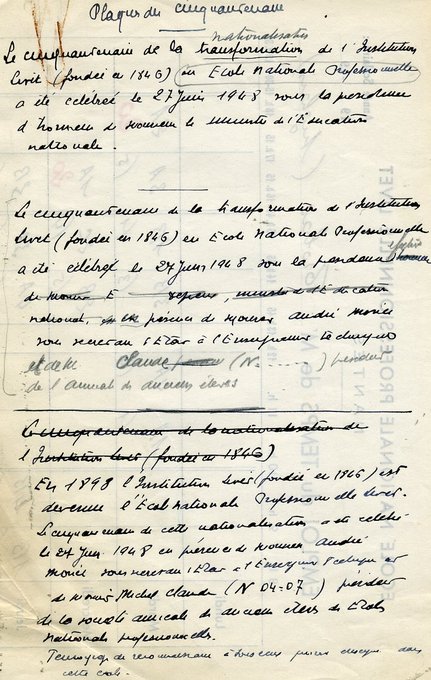 Plaque du cinquantenaire
nationalisation
Le cinquantenaire de la transformation de l'Institution
Livet (fondée en 1846) en Ecole Nationale Professionnelle
a été célébré le 27 Juin 1948 sous la présidence
d'honneur de Monsieur le Ministre de l'Education
nationale.
Le cinquantenaire de la transformation de l'Institution
Livet (fondée en 1846) en Ecole Nationale Professionnelle
a été célébré le 27 Juin 1948 sous la présidence
de Monsieur E ministre de l'Education
national, en présence de Monsieur André Morice
sous secrétaire d'Etat à l'Enseignement technique
et de M. Claude (N° ......) président
de l'amicale des anciens élèves
Le cinquantenaire de la nationalisation de
l'Institution Livet (fondée en 1846)
En 1898 l'Institution Livet (fondée en 1846) est
devenue l'Ecole Nationale Professionnelle Livet.
Le cinquantenaire de cette nationalisation a été célébré
le 27 Juin 1948 en présence de Monsieur André
Morice sous secrétaire d'Etat à l'Enseignement Technique et
de Monsieur Michel Claude (N 04-07) président
de la société amicale des anciens élèves des Ecoles
Nationales Professionnelles.
Témoignage de reconnaissance à tous ceux dans
cette école.